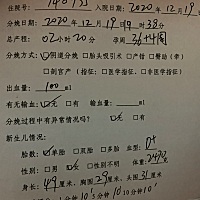 住院号: 140755 入院日期: 2020年12月19日
分娩日期: 2020年12月19日9时38分
总产程: 02小时20分 孕周 36+4周
分娩方式: ☑阴道分娩 □胎头吸引术 □产钳 □臀助 (牵)
□剖宫产 (指征: □医学指征、□非医学指征)
出血量: 100ml
有无输血: ☑无 □有 输血量: ml
分娩过程中有异常情况吗?
新生儿情况:
胎数: ☑单胎 □双胎 □多胎 血型: O+
性别: □男 ☑女 □性别不明 体重: 2475克
身长: 49厘米, 胸围29厘米, 头围31厘米
1分钟 10 5分钟 10 10分钟 10